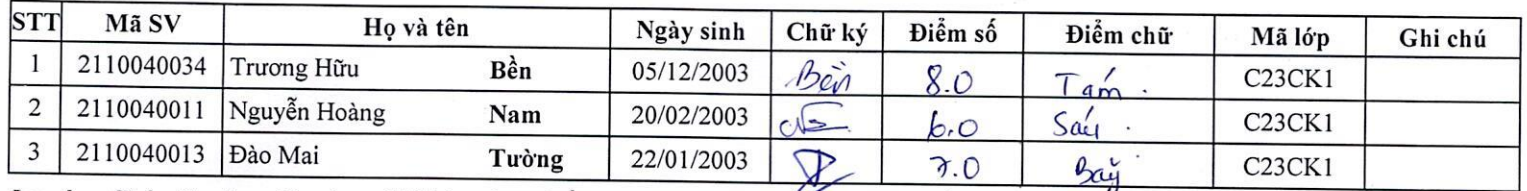 STT Mã SV Họ và tên Ngày sinh Chữ ký Điểm số Điểm chữ Mã lớp Ghi chú
1 2110040034 Trương Hữu Bền 05/12/2003 Bền 8.0 Tám . C23CK1
2 2110040011 Nguyễn Hoàng Nam 20/02/2003 6.0 Sáu . C23CK1
3 2110040013 Đào Mai Tường 22/01/2003 7.0 Bảy C23CK1